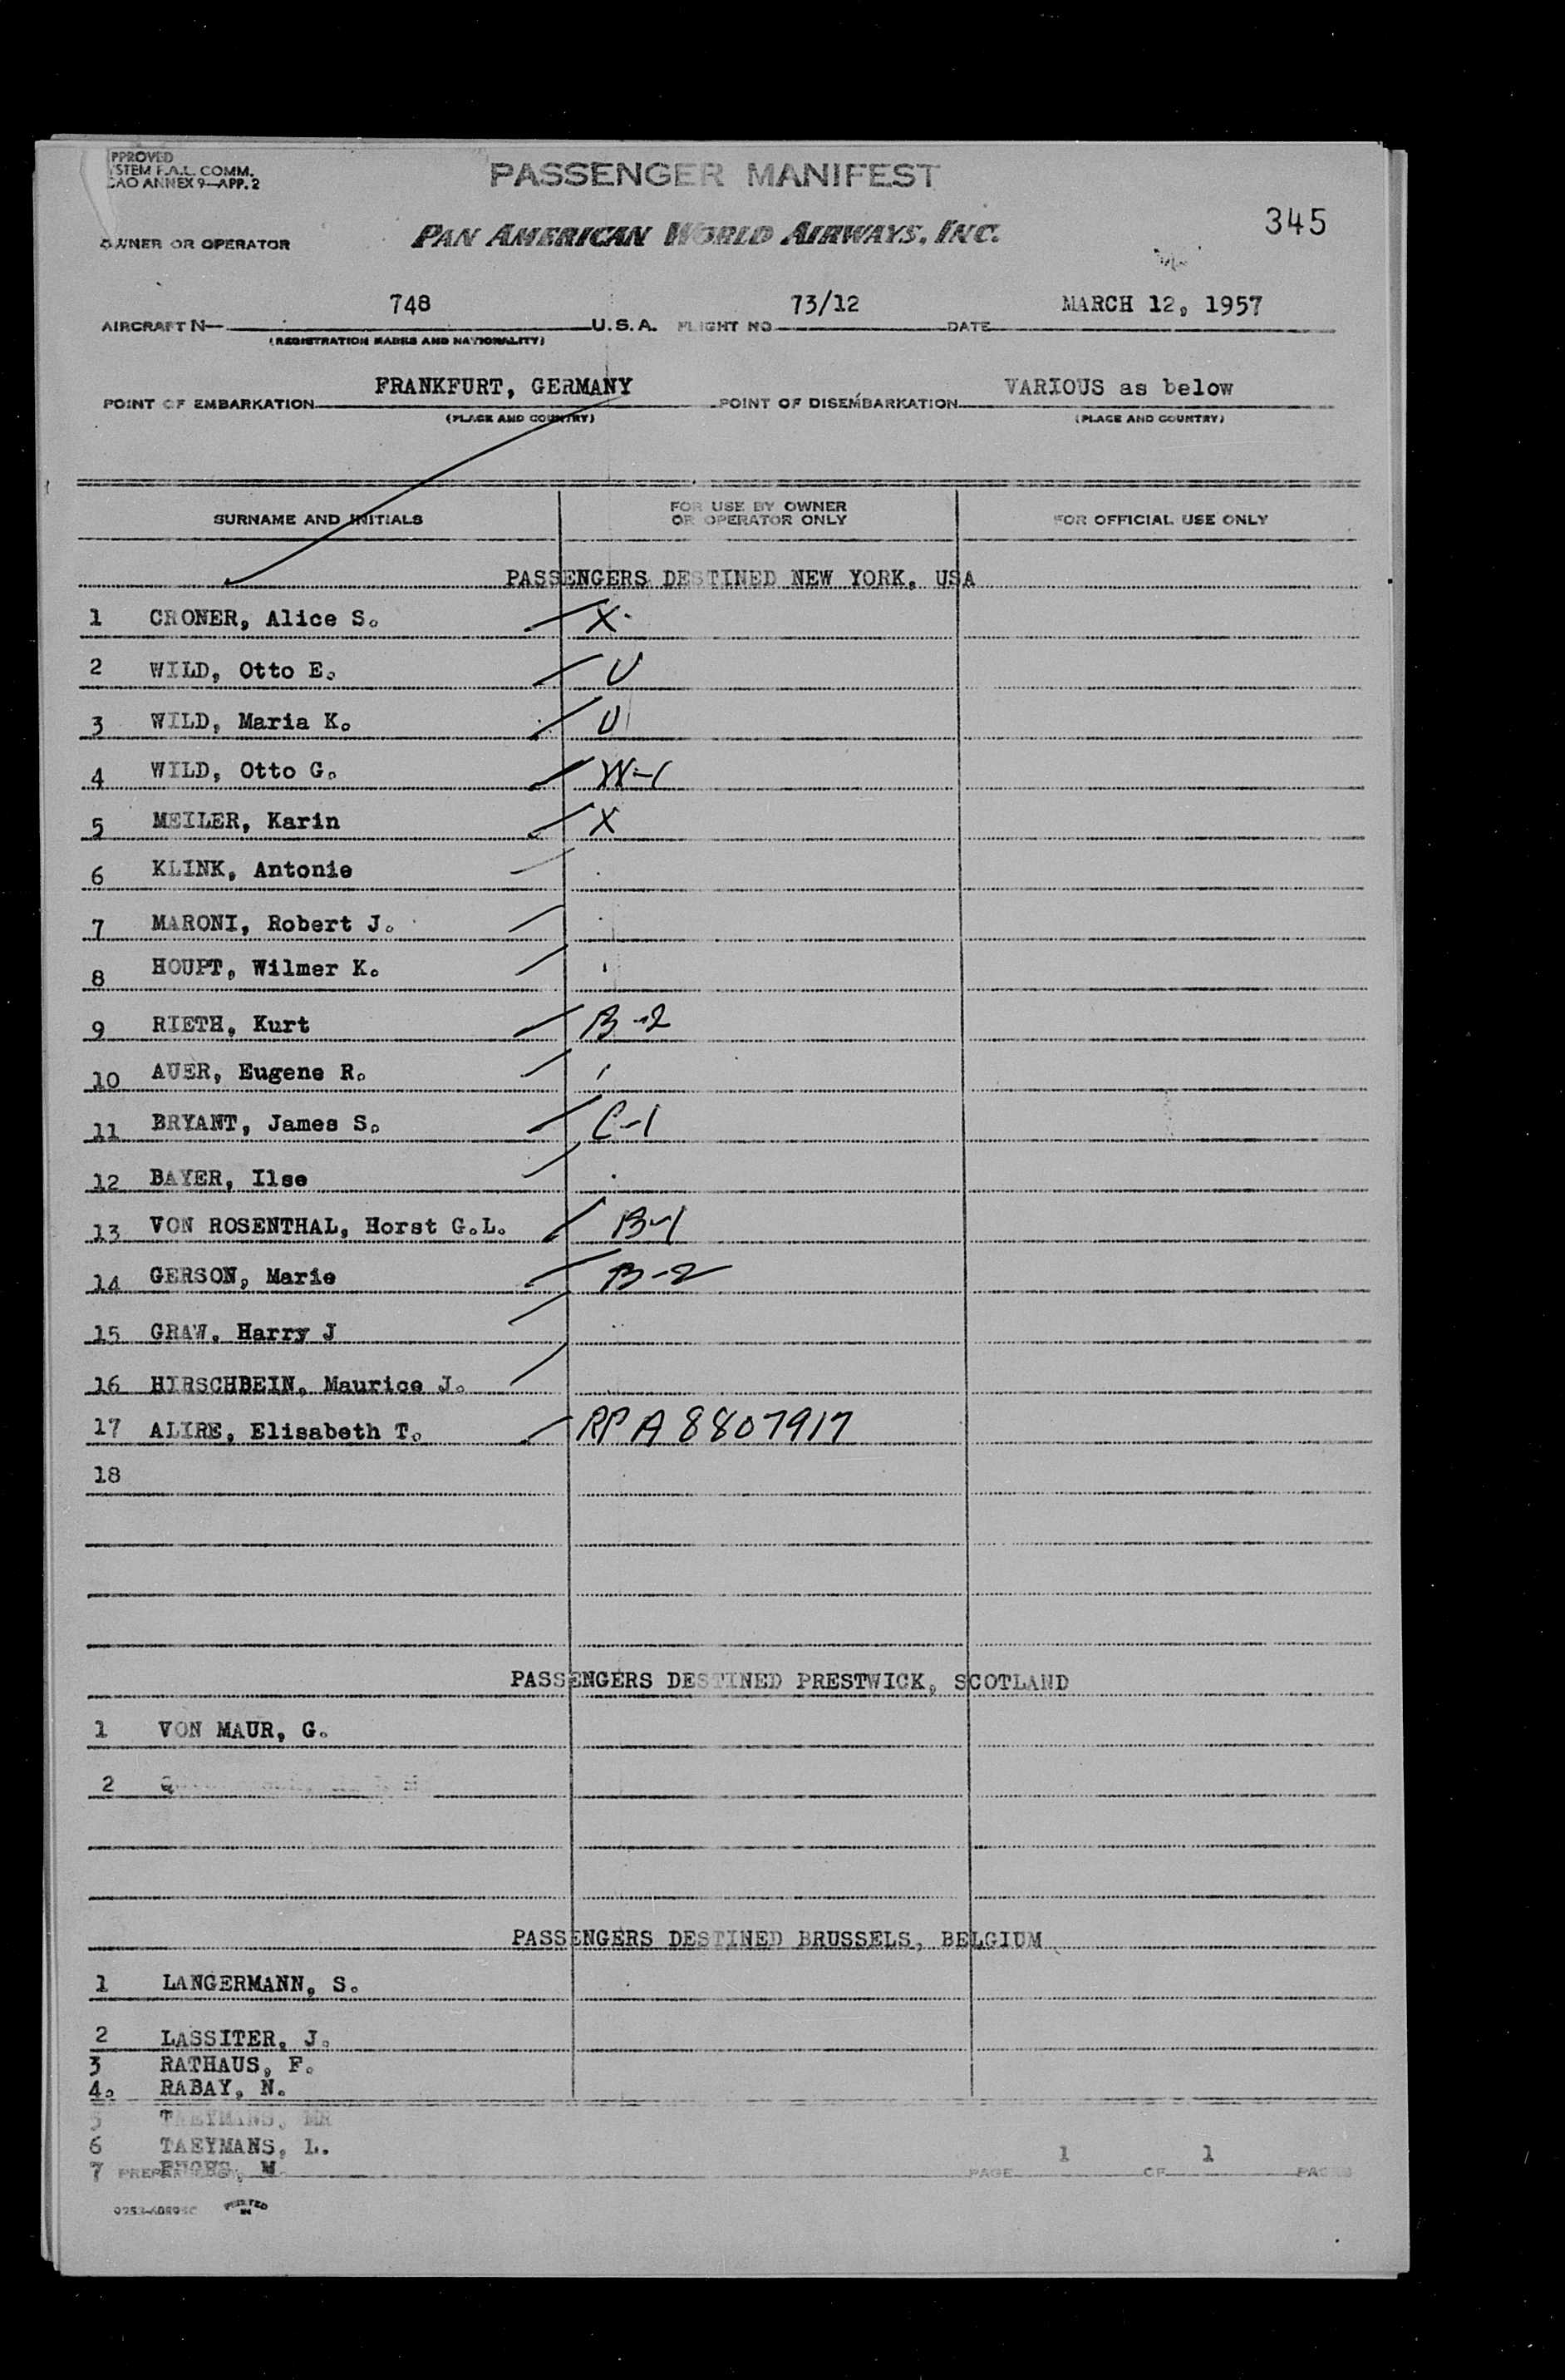 PPROVED
YSTEM F.A.L. COMM.
CAO ANNEX 9—APP. 2
PASSENGER MANIFEST
345
OWNER OR OPERATOR
PAN AMERICAN WORLD AIRWAYS, INC.
748 73/12 MARCH 12, 1957
AIRCRAFT N— U.S.A. FLIGHT NO DATE
(REGISTRATION MARKS AND NATIONALITY)
FRANKFURT, GERMANY VARIOUS as below
POINT OF EMBARKATION POINT OF DISEMBARKATION
(PLACE AND COUNTRY) (PLACE AND COUNTRY)
SURNAME AND INITIALS FOR USE BY OWNER OR OPERATOR ONLY FOR OFFICIAL USE ONLY
PASSENGERS DESTINED NEW YORK, USA
1 CRONER, Alice S. X
2 WILD, Otto E. U
3 WILD, Maria K. U
4 WILD, Otto G. W-1
5 MEILER, Karin X
6 KLINK, Antonie
7 MARONI, Robert J.
8 HOUPT, Wilmer K.
9 RIETH, Kurt B-2
10 AUER, Eugene R.
11 BRYANT, James S. C-1
12 BAYER, Ilse
13 VON ROSENTHAL, Horst G.L. B-1
14 GERSON, Marie B-2
15 GRAW, Harry J
16 HIRSCHBEIN, Maurice J.
17 ALIRE, Elisabeth T. RP A8807917
18
PASSENGERS DESTINED PRESTWICK, SCOTLAND
1 VON MAUR, G.
2
PASSENGERS DESTINED BRUSSELS, BELGIUM
1 LANGERMANN, S.
2 LASSITER, J.
3 RATHAUS, F.
4. RABAY, N.
5 TAEYMANS, MR
6 TAEYMANS, L.
7 M.
PAGE 1 OF 1 PAGES
PRINTED IN